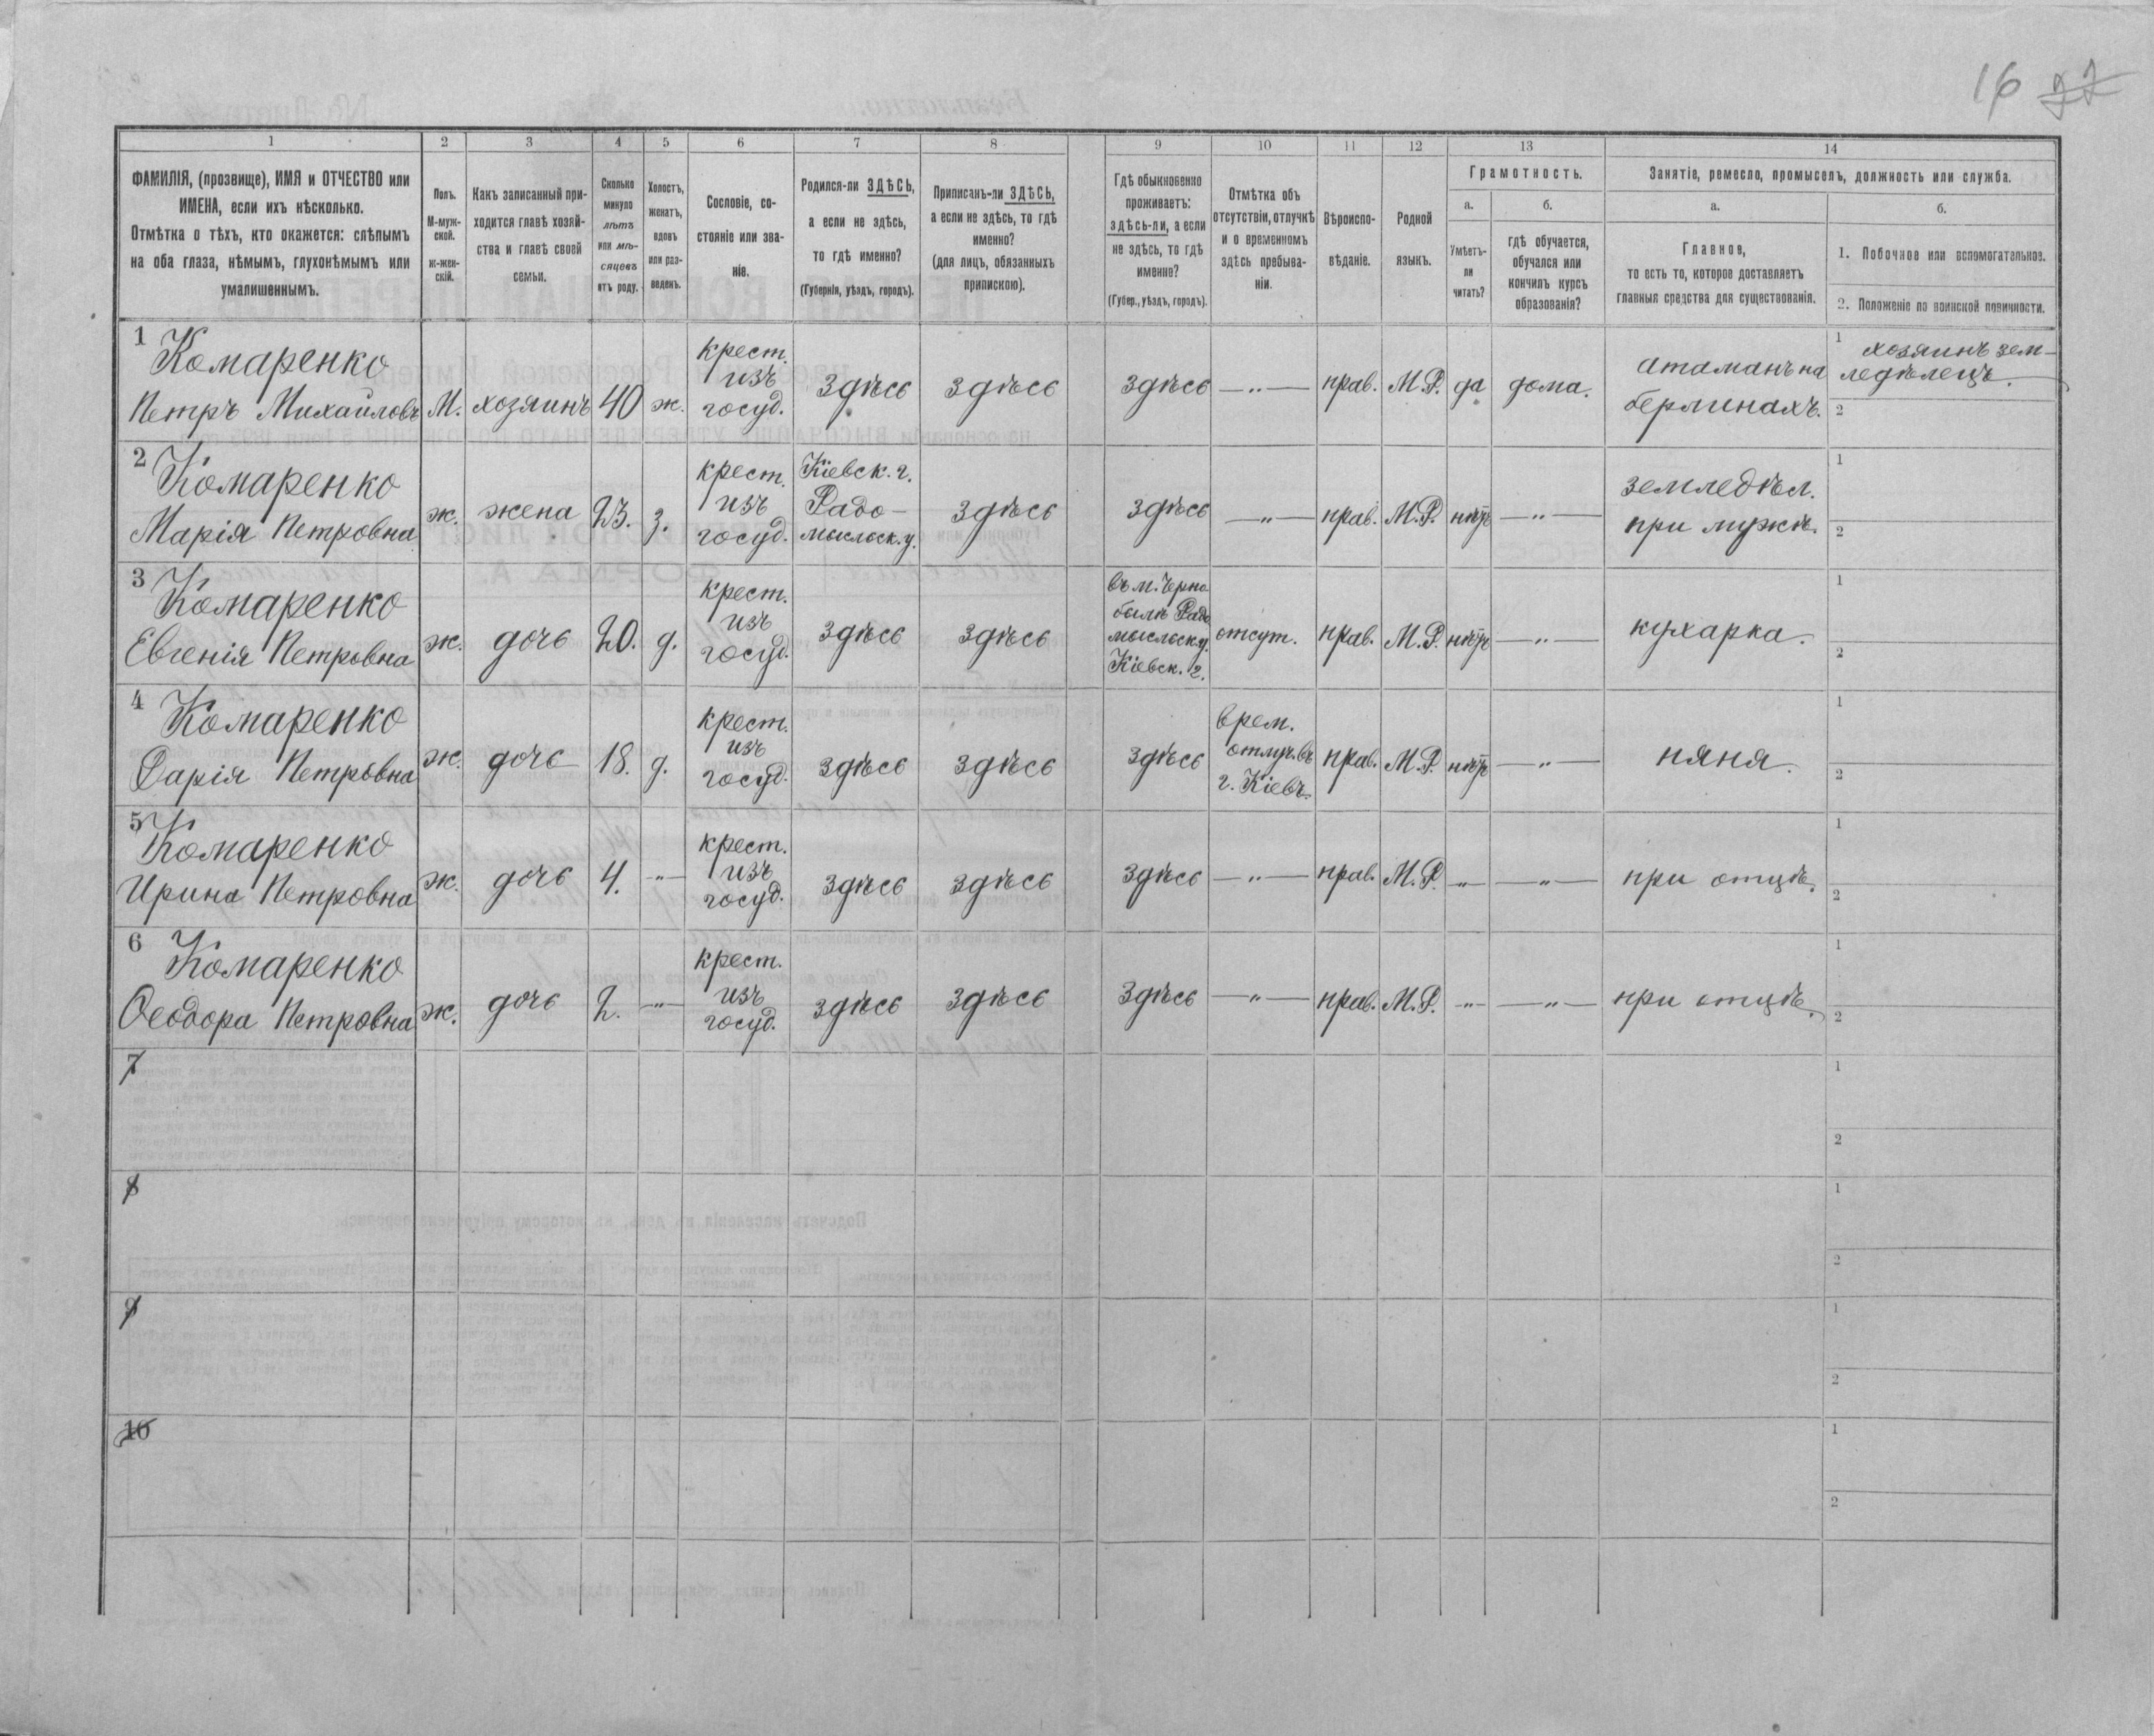 16 27
1
ФАМИЛІЯ, (прозвище), ИМЯ и ОТЧЕСТВО или
ИМЕНА, если ихъ нѣсколько.
Отмѣтка о тѣхъ, кто окажется: слѣпымъ
на оба глаза, нѣмымъ, глухонѣмымъ или
умалишеннымъ.
2
Полъ.
М-муж-
ской.
ж-жен-
скій.
3
Какъ записанный при-
ходится главѣ хозяй-
ства и главѣ своей
семьи.
4
Сколько
минуло
лѣтъ
или мѣ-
сяцевъ
отъ роду.
5
Холостъ,
женатъ,
вдовъ
или раз-
веденъ.
6
Сословіе, со-
стояніе или зва-
ніе.
7
Родился-ли ЗДѢСЬ,
а если не здѣсь,
то гдѣ именно?
(Губернія, уѣздъ, городъ).
8
Приписанъ-ли ЗДѢСЬ,
а если не здѣсь, то гдѣ
именно?
(для лицъ, обязанныхъ
припискою).
9
Гдѣ обыкновенно
проживаетъ:
здѣсь-ли, а если
не здѣсь, то гдѣ
именно?
(Губер., уѣздъ, городъ).
10
Отмѣтка объ
отсутствіи, отлучкѣ
и о временномъ
здѣсь пребыва-
ніи.
11
Вѣроиспо-
вѣданіе.
12
Родной
языкъ.
13
Грамотность.
а.
Умѣетъ-
ли
читать?
б.
гдѣ обучается,
обучался или
кончилъ курсъ
образованія?
14
Занятіе, ремесло, промыселъ, должность или служба.
а.
Главное,
то есть то, которое доставляетъ
главныя средства для существованія.
б.
1. Побочное или вспомогательное.
2. Положеніе по воинской повинности.
1
Комаренко
Петръ Михайловъ
М.
хозяинъ
40
ж.
крест.
изъ
госуд.
здѣсь
здѣсь
здѣсь
—„—
прав.
М.Р.
да
дома.
атаманъ на
берлинахъ.
1 хозяинъ зем-
ледѣлецъ.
2
2
Комаренко
Марія Петровна
ж.
жена
23.
з.
крест.
изъ
госуд.
Кіевск. г.
Радо-
мысльск. у.
здѣсь
здѣсь
—„—
прав.
М.Р.
нѣтъ
—„—
земледѣл.
при мужѣ.
1
2
3
Комаренко
Евгенія Петровна
ж.
дочь
20.
д.
крест.
изъ
госуд.
здѣсь
здѣсь
въ м. Черно
былѣ Радо
мысльск. у.
Кіевск. г.
отсут.
прав.
М.Р.
нѣтъ
—„—
кухарка.
1
2
4
Комаренко
Дарія Петровна
ж.
дочь
18.
д.
крест.
изъ
госуд.
здѣсь
здѣсь
здѣсь
врем.
отлуч. въ
г. Кіевъ.
прав.
М.Р.
нѣтъ
—„—
няня.
1
2
5
Комаренко
Ирина Петровна
ж.
дочь
4.
—„—
крест.
изъ
госуд.
здѣсь
здѣсь
здѣсь
—„—
прав.
М.Р.
—„—
—„—
при отцѣ.
1
2
6
Комаренко
Ѳеодора Петровна
ж.
дочь
2.
—„—
крест.
изъ
госуд.
здѣсь
здѣсь
здѣсь
—„—
прав.
М.Р.
—„—
—„—
при отцѣ.
1
2
7
1
2
8
1
2
9
1
2
10
1
2